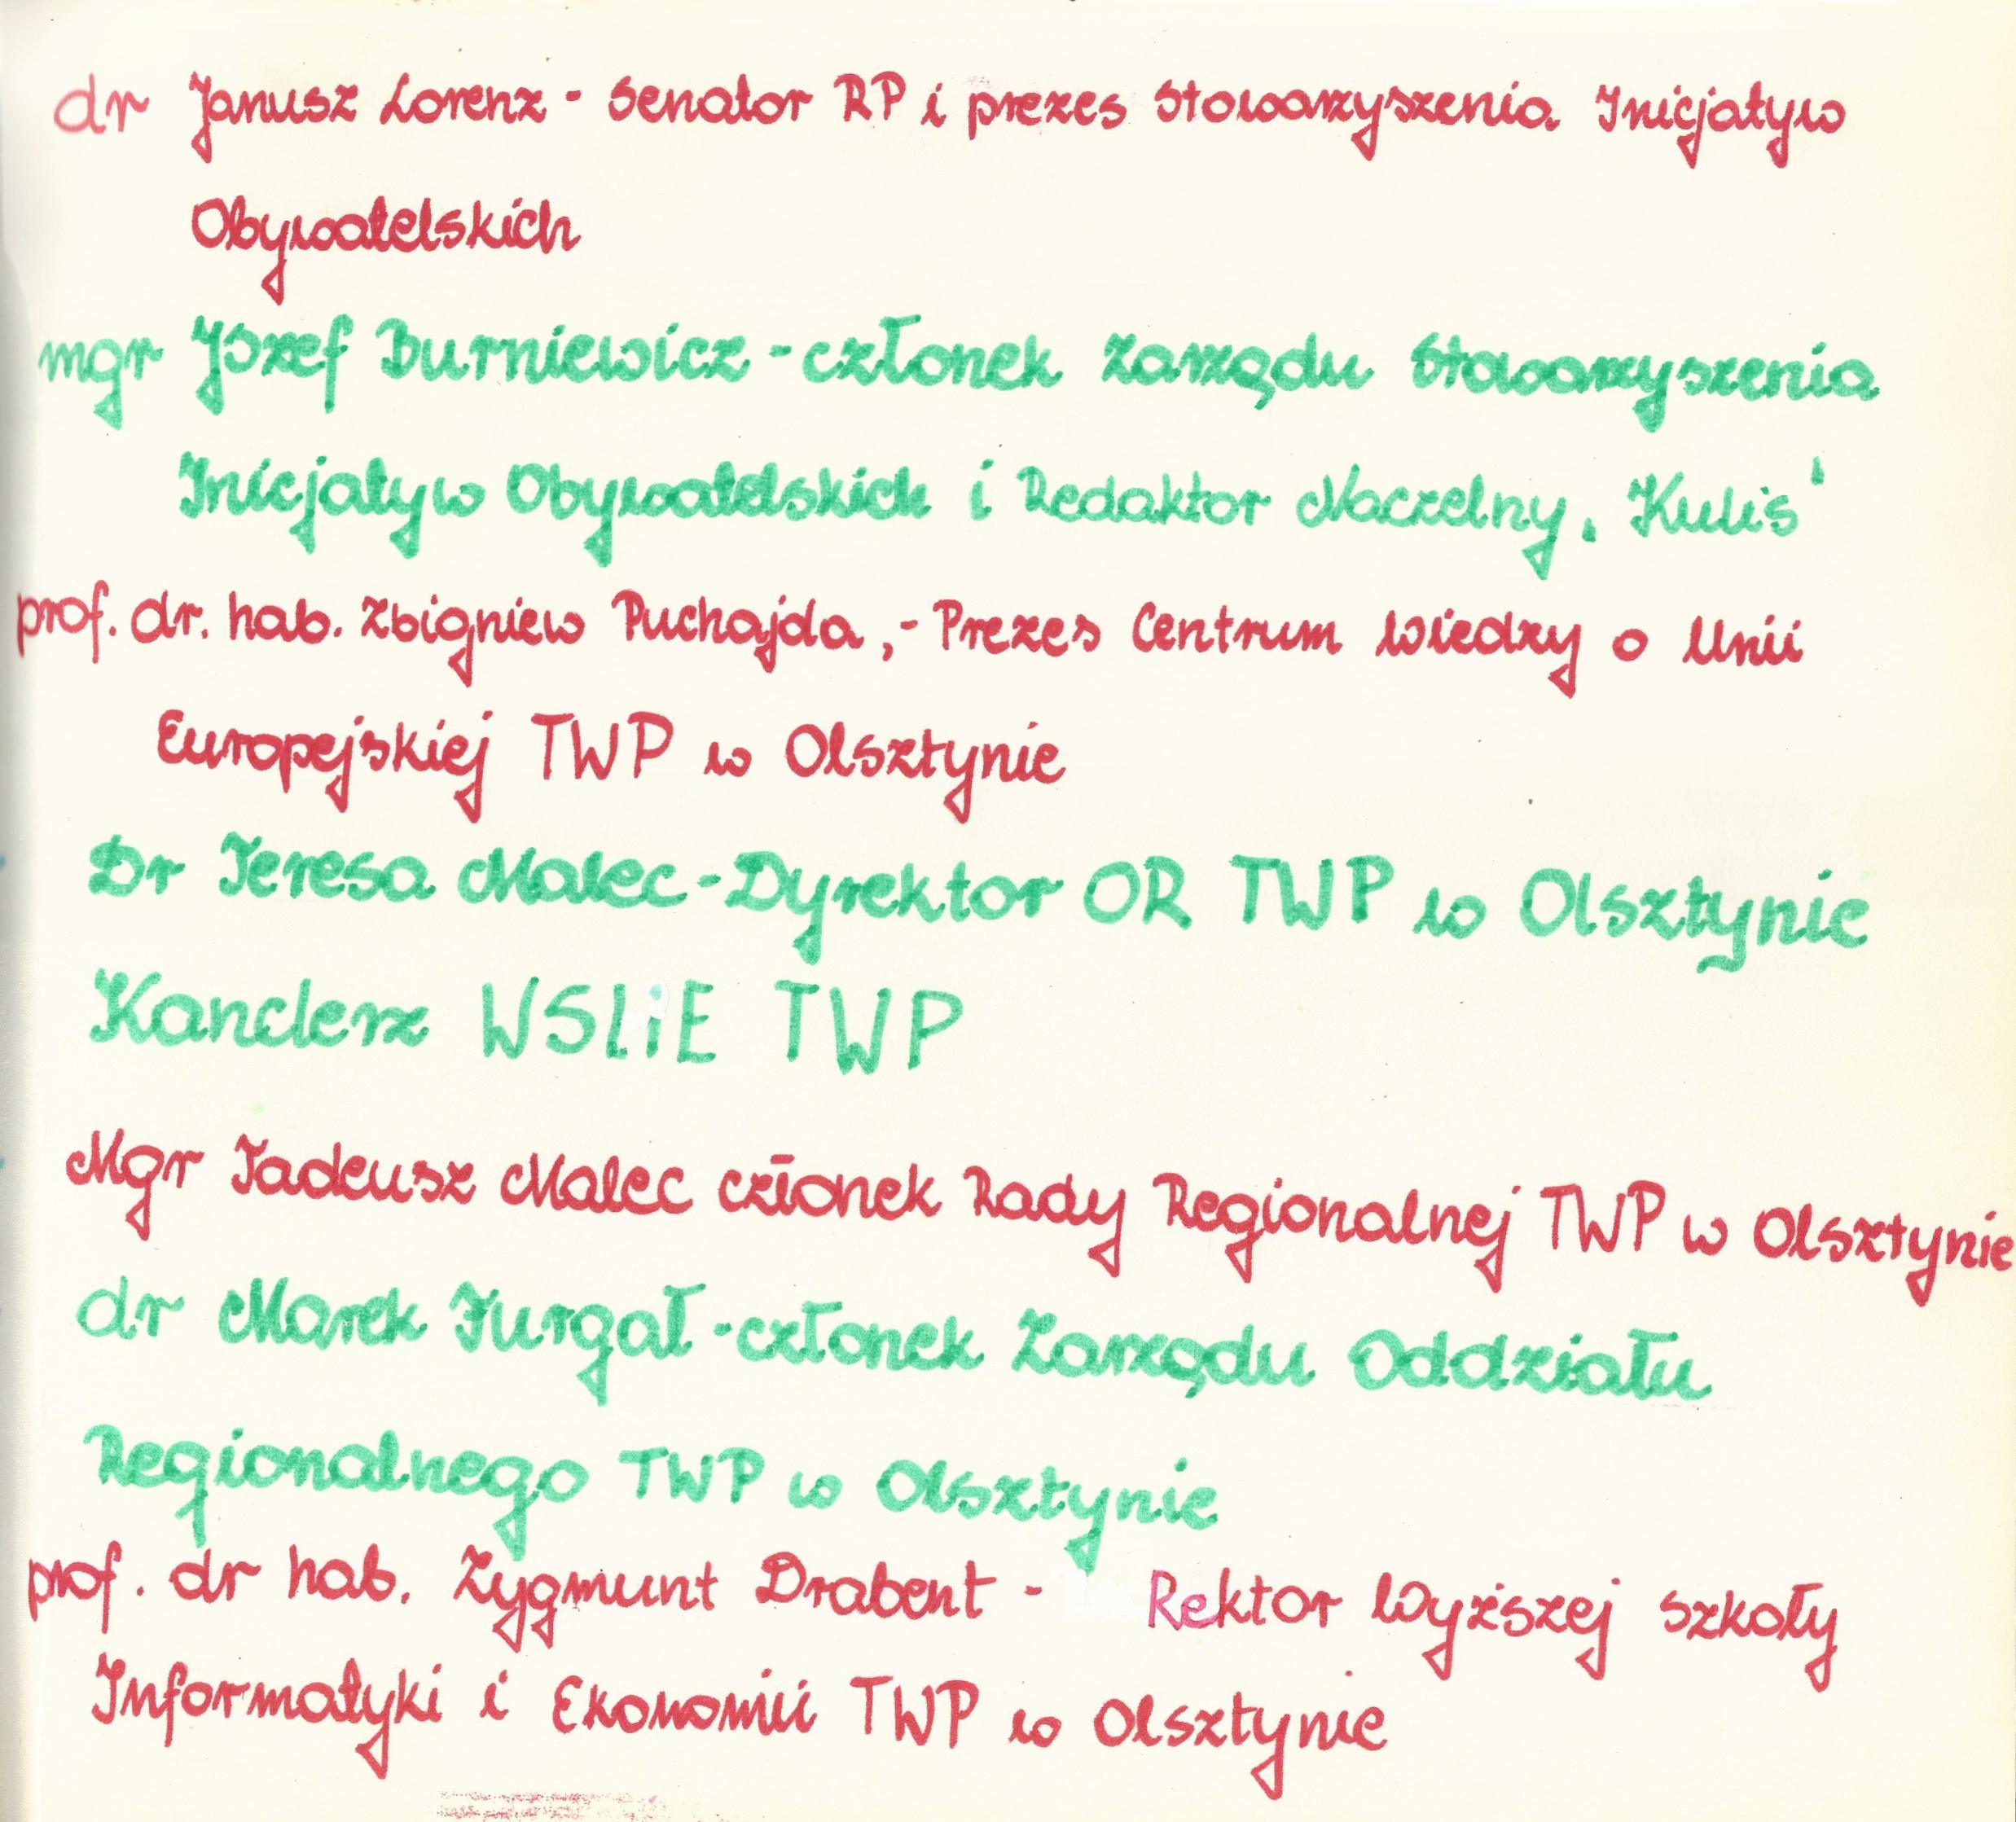 dr Janusz Lorenz - Senator RP i prezes Stowarzyszenia Inicjatyw
Obywatelskich
mgr Józef Burniewicz - członek Zarządu Stowarzyszenia
Inicjatyw Obywatelskich i Redaktor Naczelny „Kulis"
prof. dr. hab. Zbigniew Puchajda,- Prezes Centrum Wiedzy o Unii
Europejskiej TWP w Olsztynie
Dr Teresa Malec - Dyrektor OR TWP w Olsztynie
Kanclerz WSIiE TWP
Mgr Tadeusz Malec członek Rady Regionalnej TWP w Olsztynie
dr Marek Furgał - członek Zarządu Oddziału
Regionalnego TWP w Olsztynie
prof. dr hab. Zygmunt Drabent - Rektor Wyższej Szkoły
Informatyki i Ekonomii TWP w Olsztynie